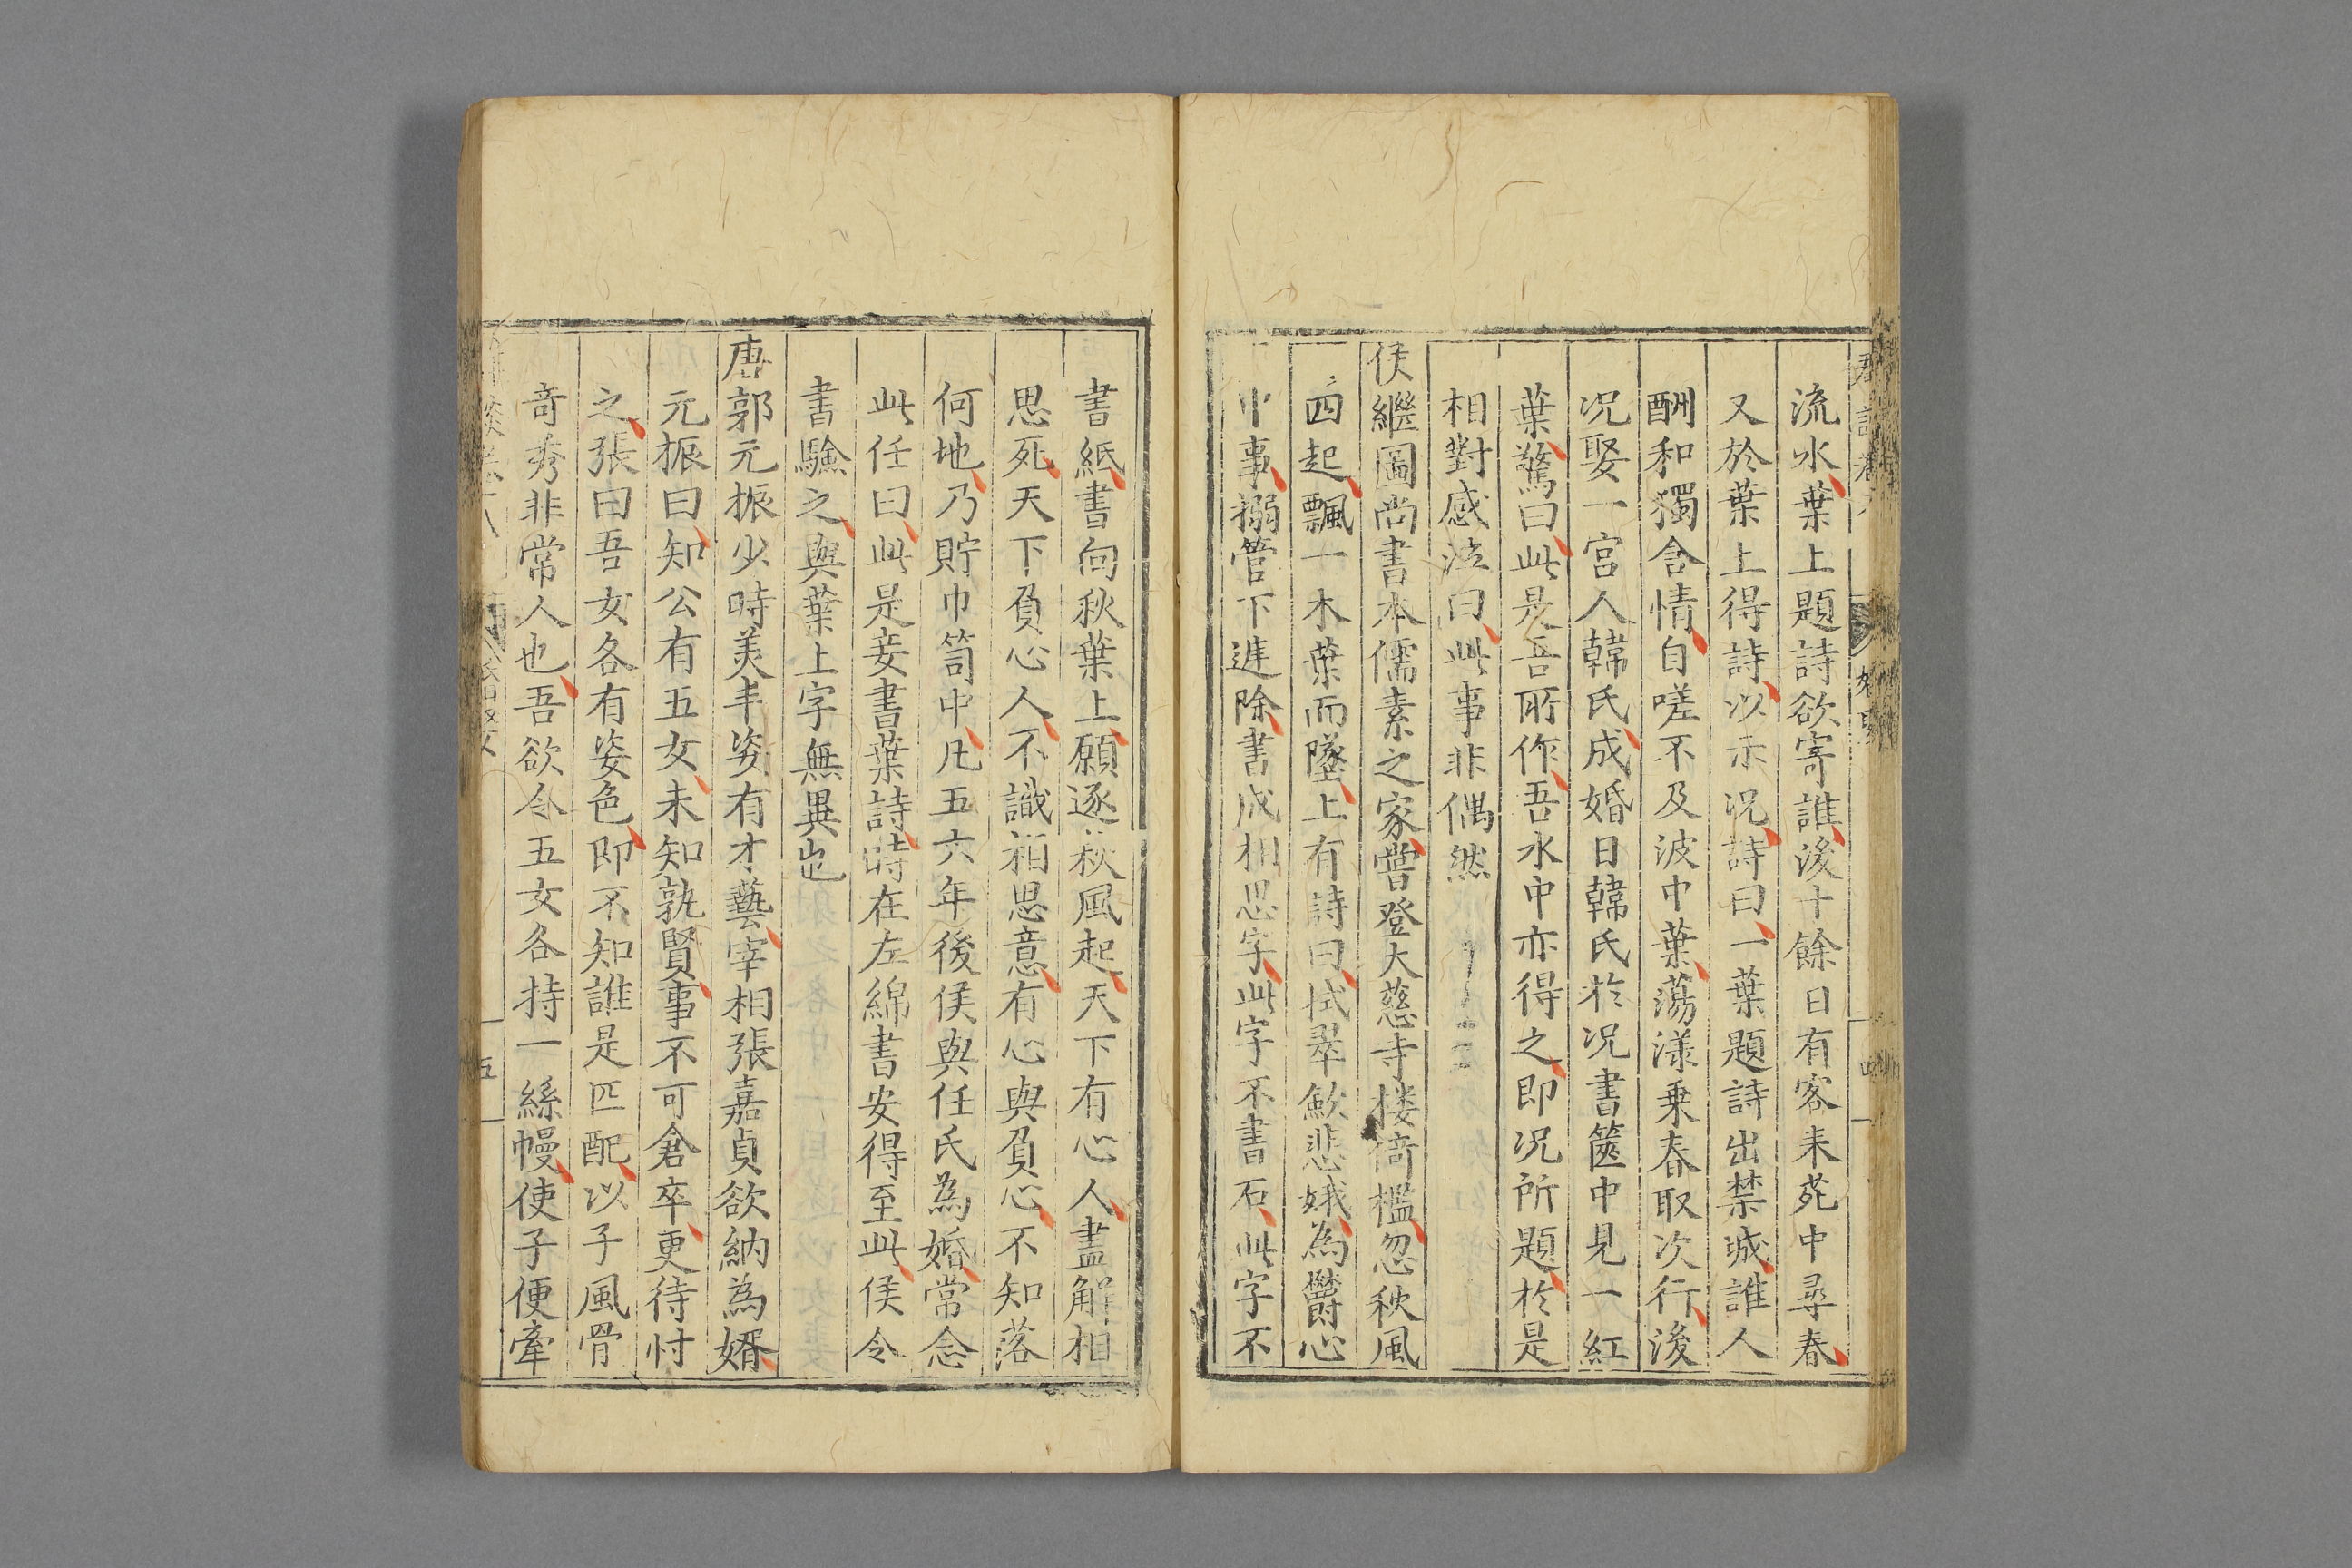 流水葉上題詩欲寄誰後十餘日有客来苑中尋春
又於葉上得詩以示况詩曰一葉題詩出禁城誰人
酬和獨含情自嗟不及波中葉蕩漾乗春取次行後
况娶一宮人韓氏成婚日韓氏於况書篋中見一紅
葉驚曰此是吾所作吾水中亦得之即况所題於是
相對感泣曰此事非偶然
侯繼圖尚書本儒素之家嘗登大慈寺楼倚檻忽秋風
四起飄一木葉而墜上有詩曰拭翠歛悲娥為鬱心
中事搦管下進除書成相思字此字不書石此字不
書紙書向秋葉上願逐秋風起天下有心人盡解相
思死天下負心人不識相思意有心與負心不知落
何地乃貯巾笥中凡五六年後侯與任氏為婚常念
此任曰此是妾書葉詩時在左綿書安得至此侯令
書驗之與葉上字無異也
唐郭元振少時美丰姿有才藝宰相張嘉貞欲納為婿
元振曰知公有五女未知孰賢事不可倉卒更待忖
之張曰吾女各有姿色即不知誰是匹配以子風骨
奇秀非常人也吾欲令五女各持一絲幔使子便牽
五